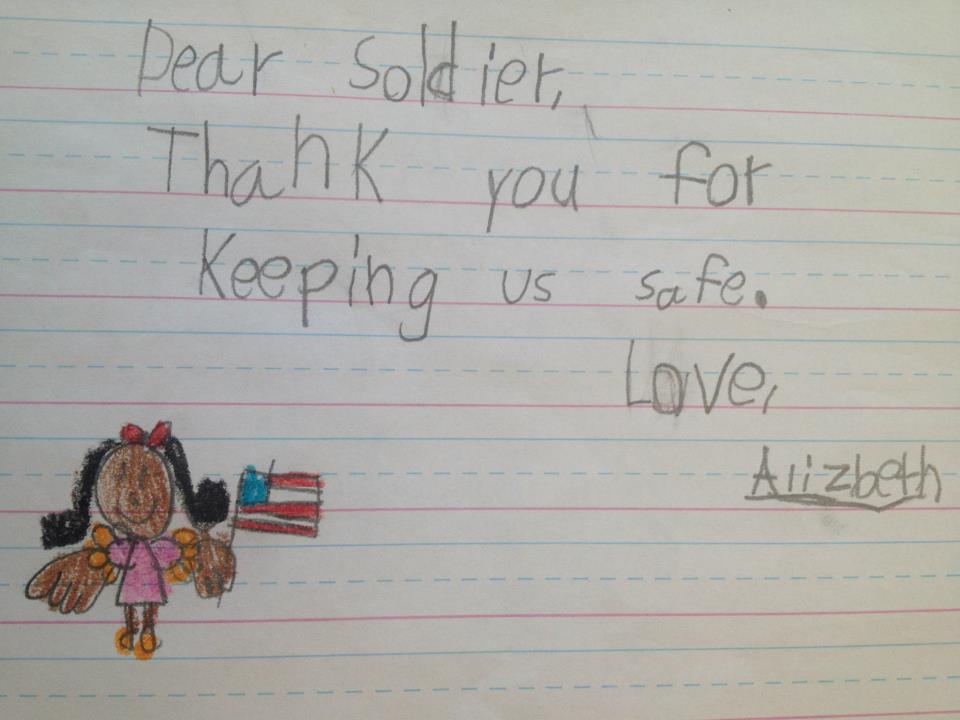 Dear Soldier,
Thank you for
Keeping us safe.
Love,
Arizbeth